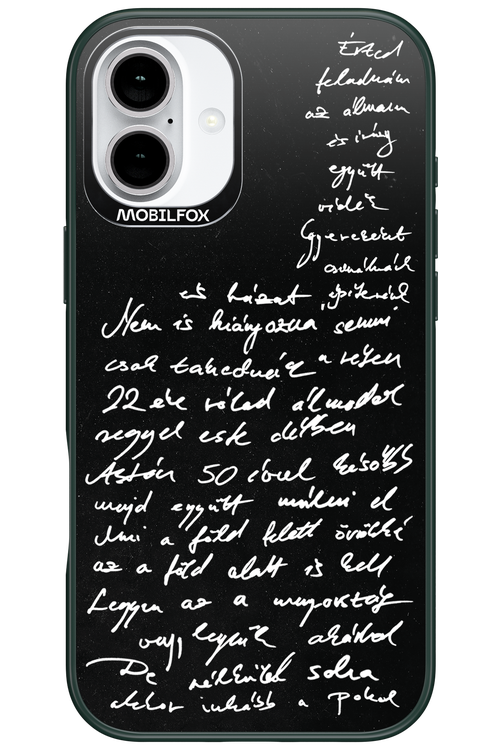 MOBILFOX
Érted
feladnám
az álmaim
és így
együtt
Gyereket
csinálnánk
és házat építenénk
Nem is hiányozna semmi
csak takednék a
22 éve rólad álmodok
reggel este délben
Aztán 50 évvel később
majd együtt múlni el
Ami a föld felett örökké
az a föld alatt is kell
Legyen az a mennyország
vagy legyünk akárhol
De nélküled soha
akkor inkább a pokol